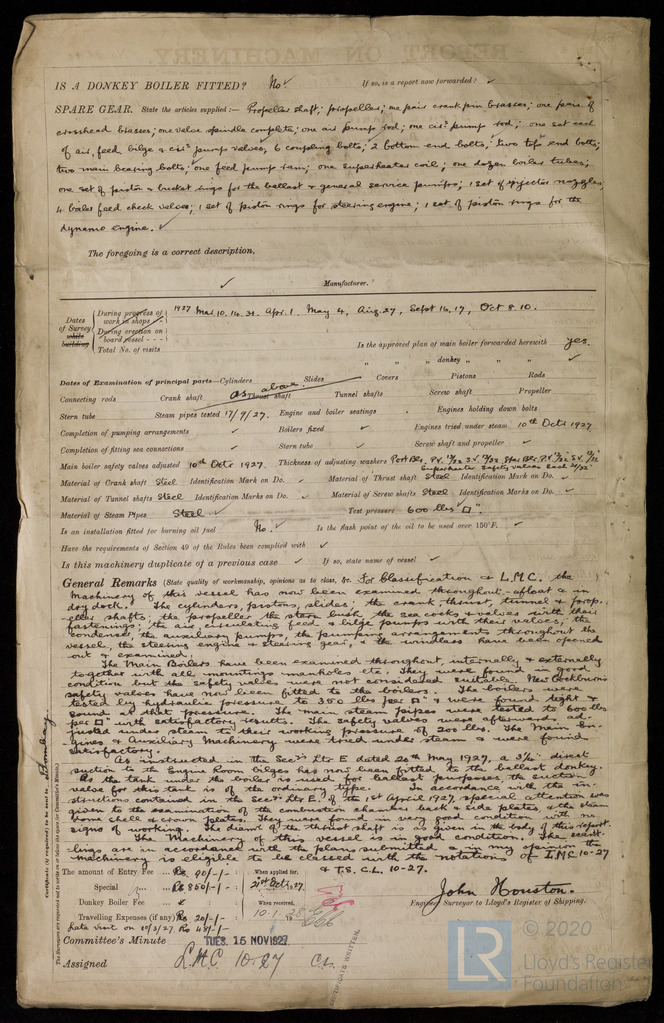 IS A DONKEY BOILER FITTED? No ✓ If so, is a report now forwarded? ✓
SPARE GEAR. State the articles supplied:— Propeller shaft; propeller; one pair crank pin brasses; one pair of
crosshead brasses; one valve spindle complete; one air pump rod; one circ pump rod; one set each
of air, feed bilge & circ pump valves, 6 coupling bolts; 2 bottom end bolts; two top end bolts;
two main bearing bolts; one feed pump ram; one superheater coil; one dozen boiler tubes;
one set of piston & bucket rings for the ballast & general service pumps; 1 set of ejector nozzles,
4 boiler feed check valves; 1 set of piston rings for steering engine; 1 set of piston rings for the
dynamo engine. ✓
The foregoing is a correct description,
✓ Manufacturer.
Dates of Survey while building
During progress of work in shops - -
1927 Mar. 10. 14. 31. Apr. 1. May 4, Aug. 27, Sept 16. 17, Oct 8. 10.
During erection on board vessel - - -
Total No. of visits
Is the approved plan of main boiler forwarded herewith yes.
" " " donkey " " " ✓
Dates of Examination of principal parts—Cylinders Slides Covers Pistons Rods
as above
Connecting rods Crank shaft Thrust shaft Tunnel shafts Screw shaft Propeller
Stern tube Steam pipes tested 17/9/27. Engine and boiler seatings ✓ Engines holding down bolts
Completion of pumping arrangements ✓ Boilers fixed ✓ Engines tried under steam 10th Oct 1927
Completion of fitting sea connections ✓ Stern tube ✓ Screw shaft and propeller ✓
Main boiler safety valves adjusted 10th Oct 1927. Thickness of adjusting washers
Superheater Safety valves each
Material of Crank shaft Steel Identification Mark on Do. ✓ Material of Thrust shaft Steel Identification Mark on Do. ✓
Material of Tunnel shafts Steel Identification Marks on Do. ✓ Material of Screw shafts Steel Identification Marks on Do. ✓
Material of Steam Pipes Steel ✓ Test pressure 600 lbs □". ✓
Is an installation fitted for burning oil fuel No. ✓ Is the flash point of the oil to be used over 150°F. ✓
Have the requirements of Section 49 of the Rules been complied with ✓
Is this machinery duplicate of a previous case ✓ If so, state name of vessel ✓
General Remarks (State quality of workmanship, opinions as to class, &c. For Classification & L.M.C. the
machinery of this vessel has now been examined throughout, afloat & in
dry dock. The cylinders, pistons, slides, the crank, thrust, tunnel & prop-
eller shafts, the propeller the stern bush, the sea cocks & valves with their
fastenings; the air, circulating feed & bilge pumps with their valves, the
condenser, the auxiliary pumps, the pumping arrangements throughout the
vessel, the steering engine & steering gear, & the windlass have been opened
out & examined.
The Main Boilers have been examined throughout, internally & externally
together with all mountings manholes etc. They were found in good
condition but the safety valves were not considered suitable. New Cockburn's
safety valves have now been fitted to the boilers. The boilers were
tested by hydraulic pressure to 350 lbs per □" & were found tight &
sound at that pressure. The main steam pipes were tested to 600 lbs
per □" with satisfactory results. The safety valves were afterwards ad-
justed under steam to their working pressure of 200 lbs. The Main En-
gines & Auxiliary Machinery were tried under steam & were found
satisfactory.
As instructed in the Secys Ltr E dated 20th May 1927, a 3½" direct
suction to the Engine Room bilges has now been fitted to the ballast donkey.
As the tank under the boiler is used for ballast purposes, the suction
valve for this tank is of the ordinary type. In accordance with the in-
struction contained in the Secys Ltr E. of the 1st April 1927, special attention was
given to the examination of the combustion chamber back & side plates, & the steam
dome shell & crown plates. They were found in very good condition with no
signs of working. The diamr of the thrust shaft is as given in the body of this report.
The Machinery of this vessel is in good condition. The scant-
lings are in accordance with the plans submitted & in my opinion the
machinery is eligible to be classed with the notations of L.M.C. 10-27
& T.S. C.L. 10-27.
The amount of Entry Fee ... Rs. 90/-/- When applied for,
Special ... Rs 850/-/- 21st Oct 1927.
Donkey Boiler Fee ... ✓ When received,
Travelling Expenses (if any) Rs 20/-/- 10.1.28
Late visit on 10/3/27 Rs 48/-/-
John Houston.
Engineer Surveyor to Lloyd's Register of Shipping.
Committee's Minute TUES. 15 NOV 1927
Assigned L.M.C 10.27 C.L.
CERTIFICATE WRITTEN.
Certificate (if required) to be sent to Bombay
The Surveyors are requested not to write on or below the space for Committee's Minute.
LR
© 2020
Lloyd's Register
Foundation